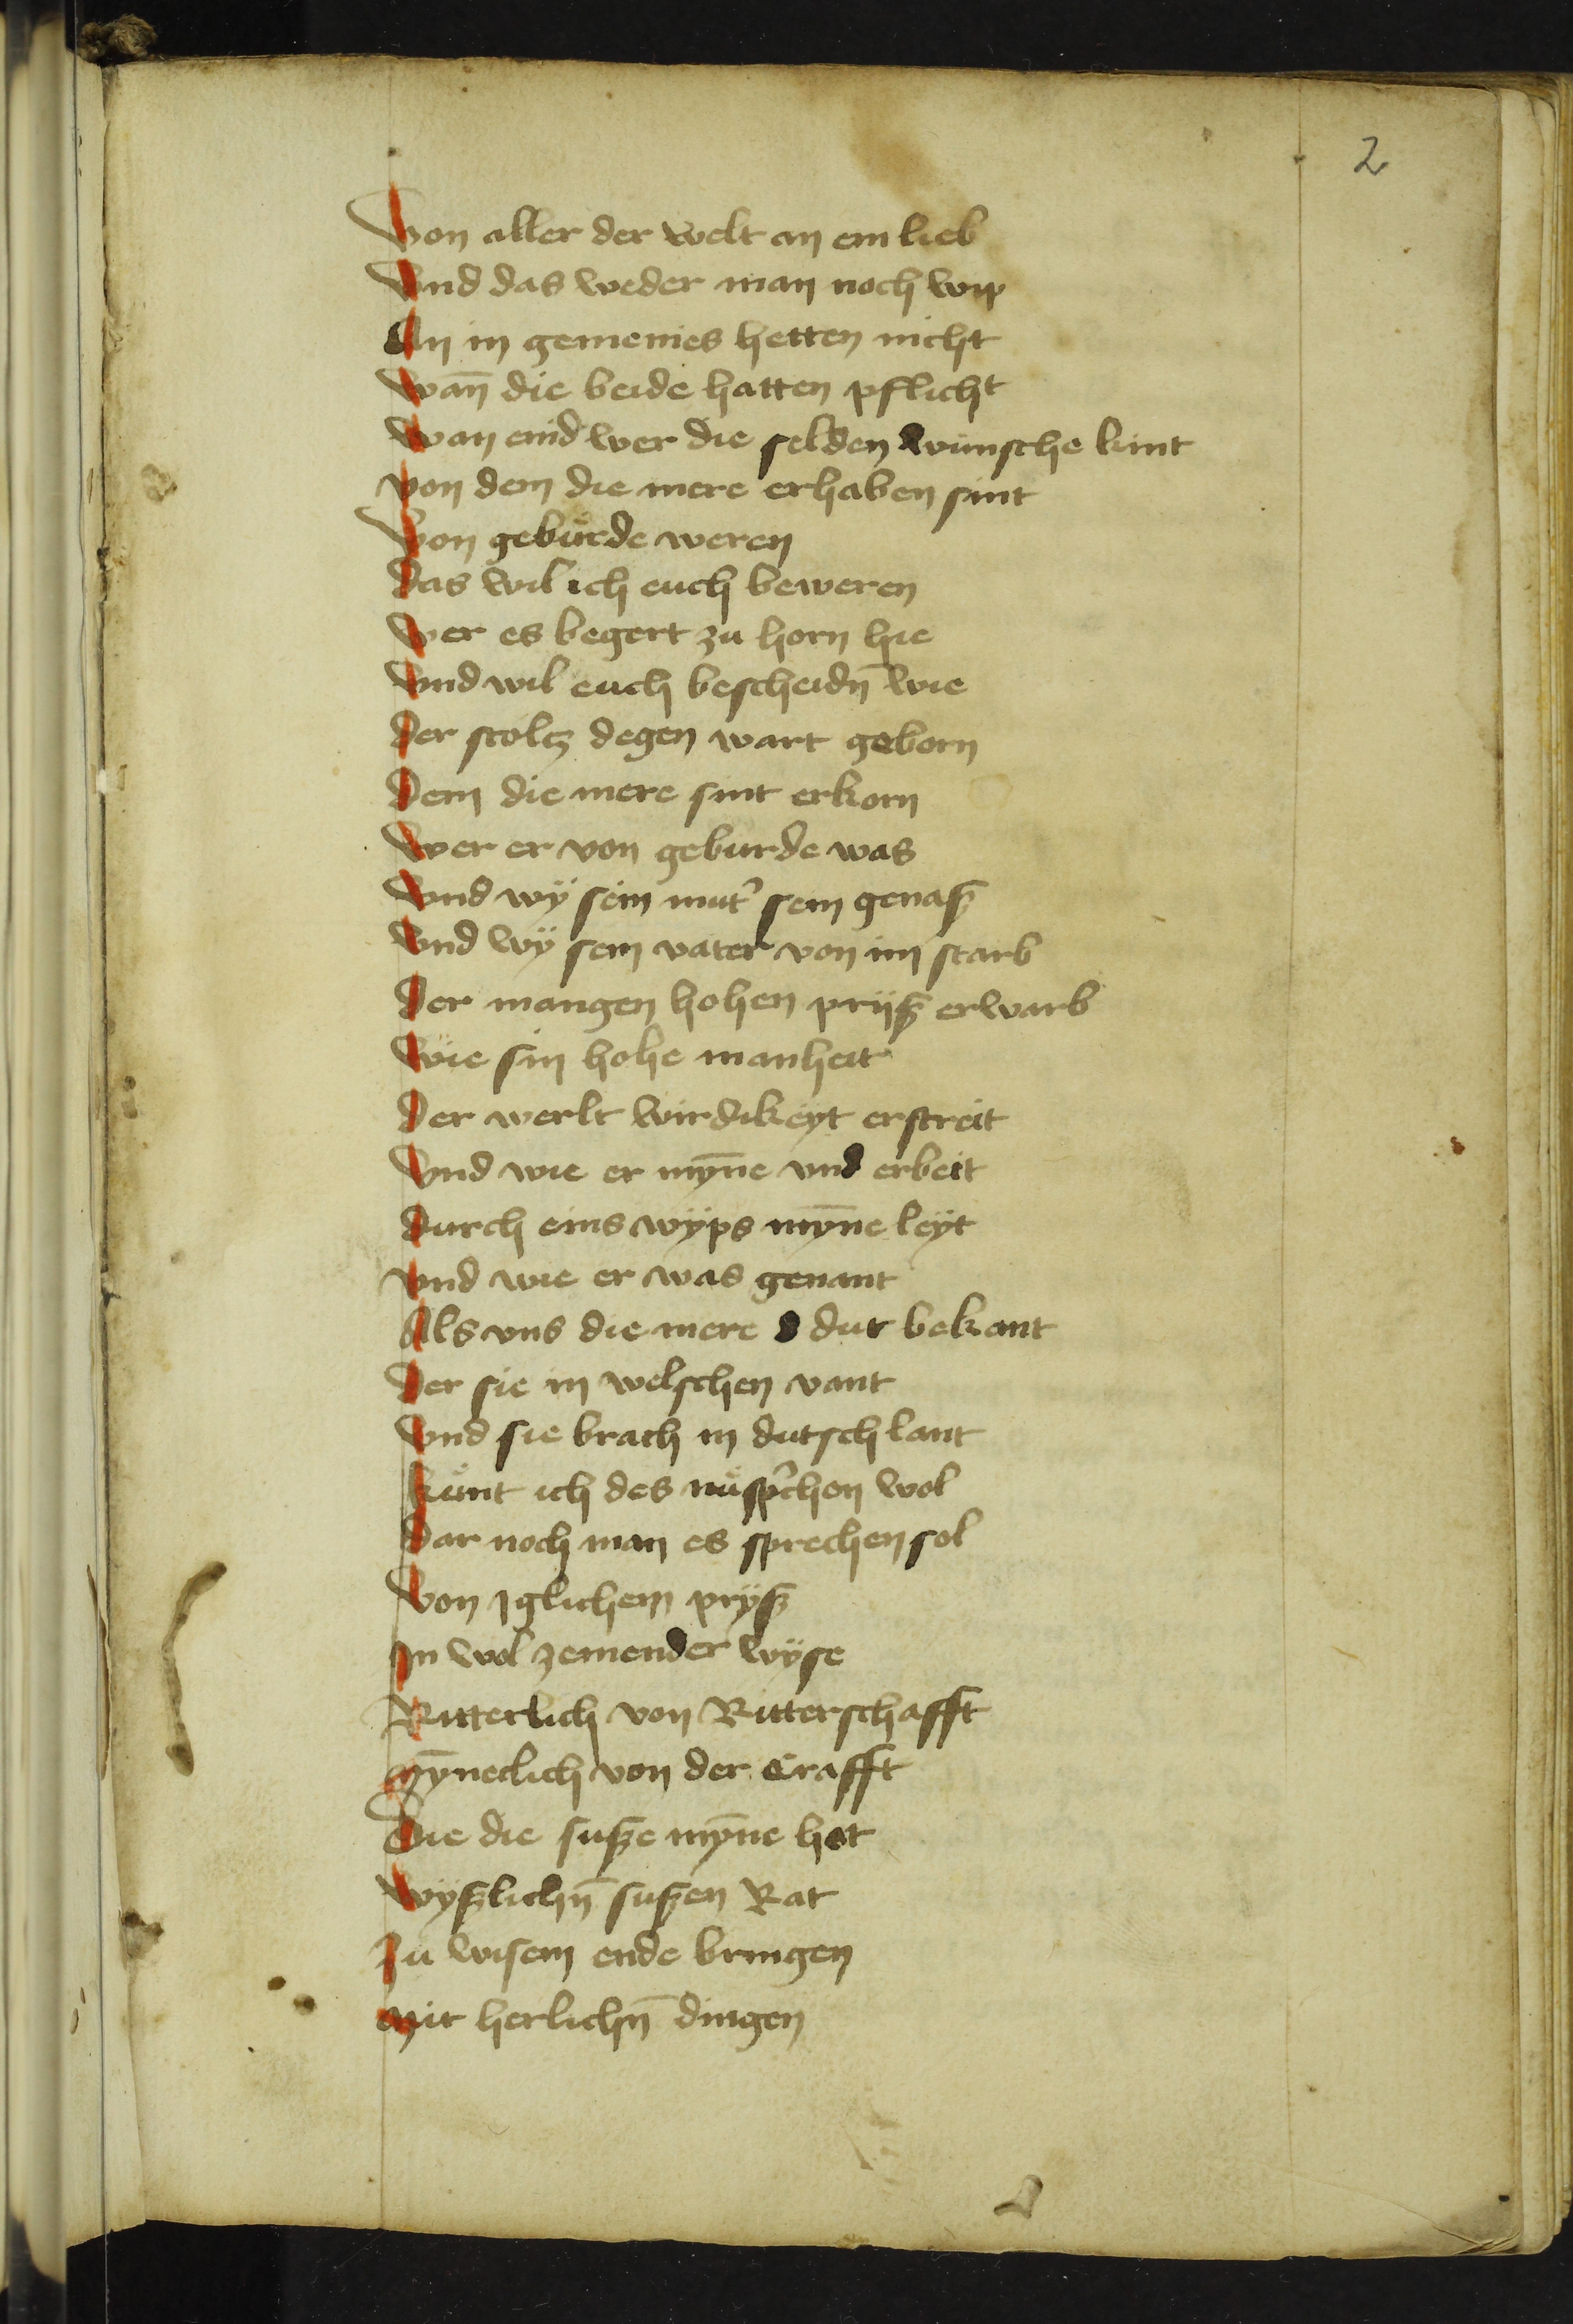 2
Von aller der welt an ein lieb
Vnd das weder man noch wip
An in gemeines hetten nicht
Wan̄ die beide hatten pflicht
Wan eind wer die selden wunsche kint
von dem die mere erhaben sint
Von gebuͤrde weren
Das wil ich euch beweren
Wer es begert zu horn hie
Vnd wil euch bescheidn̄ wie
Der stoltz degen wart geborn
Dem die mere sint erkorn
Wer er von geburde was
Vnd wÿ sein mut' sein genaß
Vnd wÿ sein vater von im starb
Der mangen hohen prijß erwarb
Wie sin hohe manheit
Der werlt wirdikeyt erstreit
Vnd wie er mȳne vnd erbeit
Durch eins wÿps mȳne leÿt
vnd wie er was genant
Als vns die mere dut bekant
Der sie in welschen vant
Vnd sie brach in dutsch lant
kuͤnt ich des nuͦ sp'chen wol
Dar noch man es sprechen sol
Von Iglichem prÿß
In wol zemender wÿse
Ritterlich von Ritterschafft
Mȳneclich von der Crafft
Die die suße mȳne hat
Wÿßlichn̄ sußen Rat
Zu wisem ende bringen
Mit herlichn̄ dingen